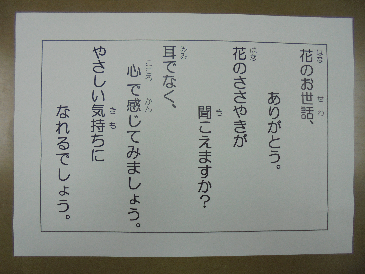 花のお世話、
ありがとう。
花のささやきが
聞こえますか？
耳でなく、
心で感じてみましょう。
やさしい気持ちに
なれるでしょう。